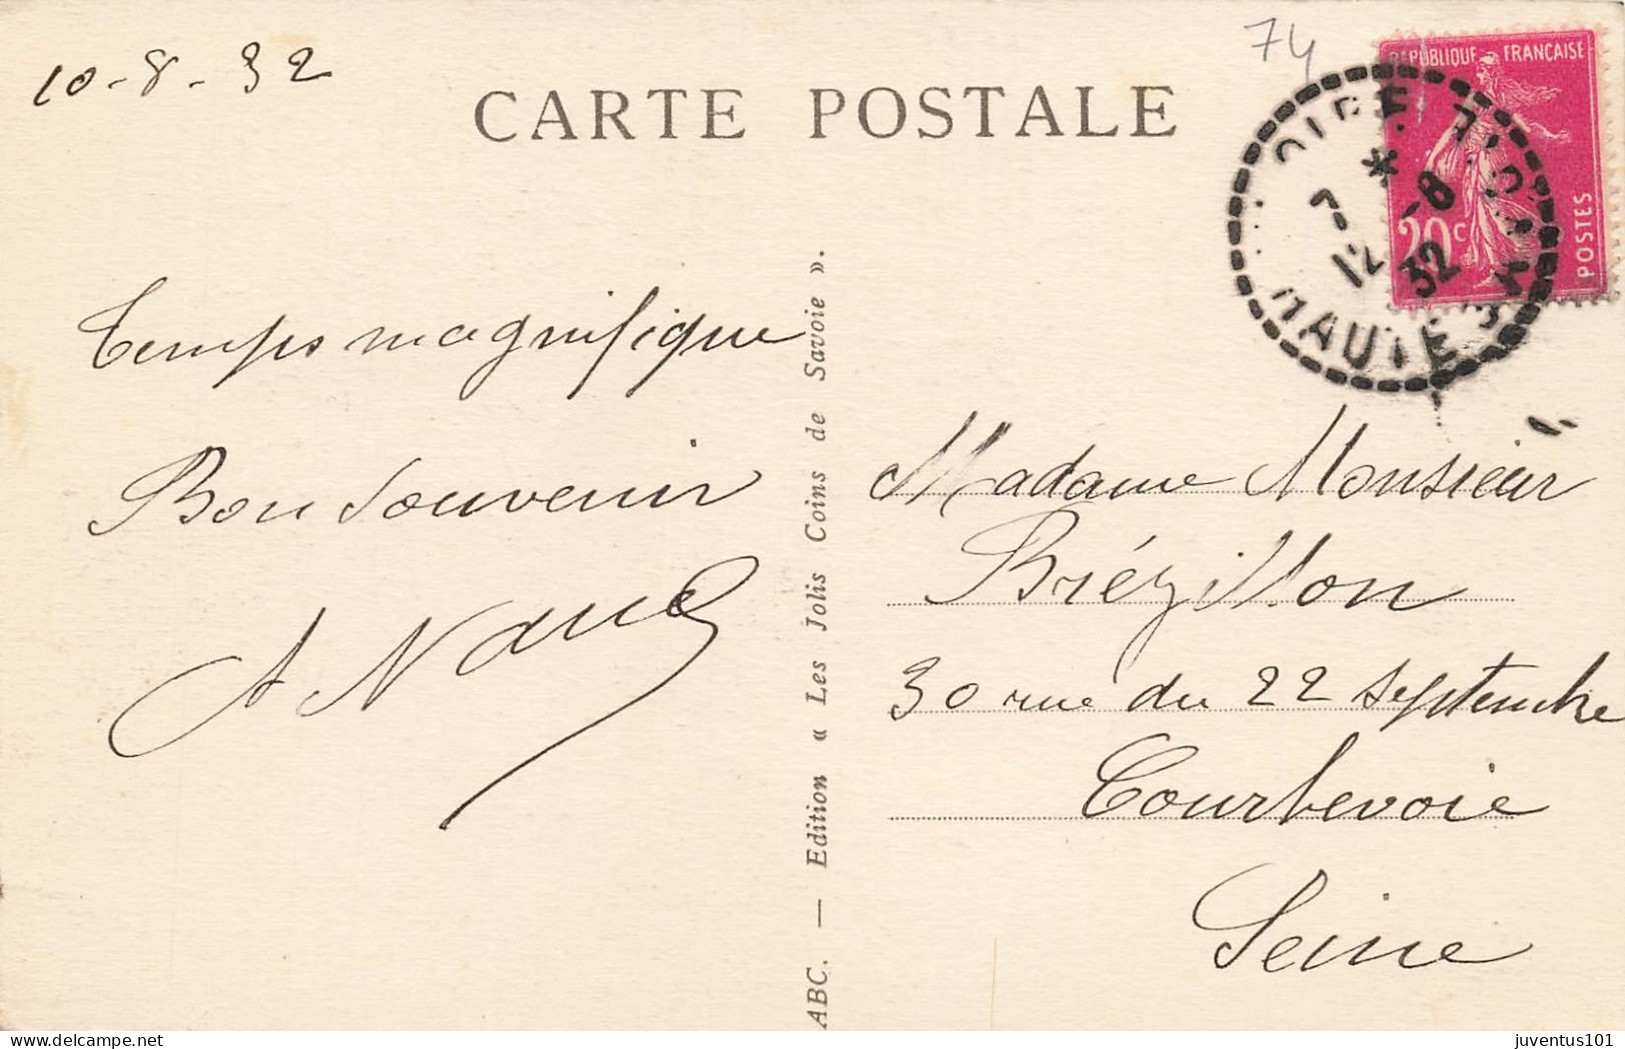 10-8-32
CARTE POSTALE
74
REPUBLIQUE FRANÇAISE
20c
POSTES
7 - *
12 -8
32
HAUTE
Temps magnifique
Bon Souvenir
ABC. — Edition « Les Jolis Coins de Savoie ».
Madame Monsieur
Brézillon
30 rue du 22 septembre
Courbevoie
Seine
juventus101